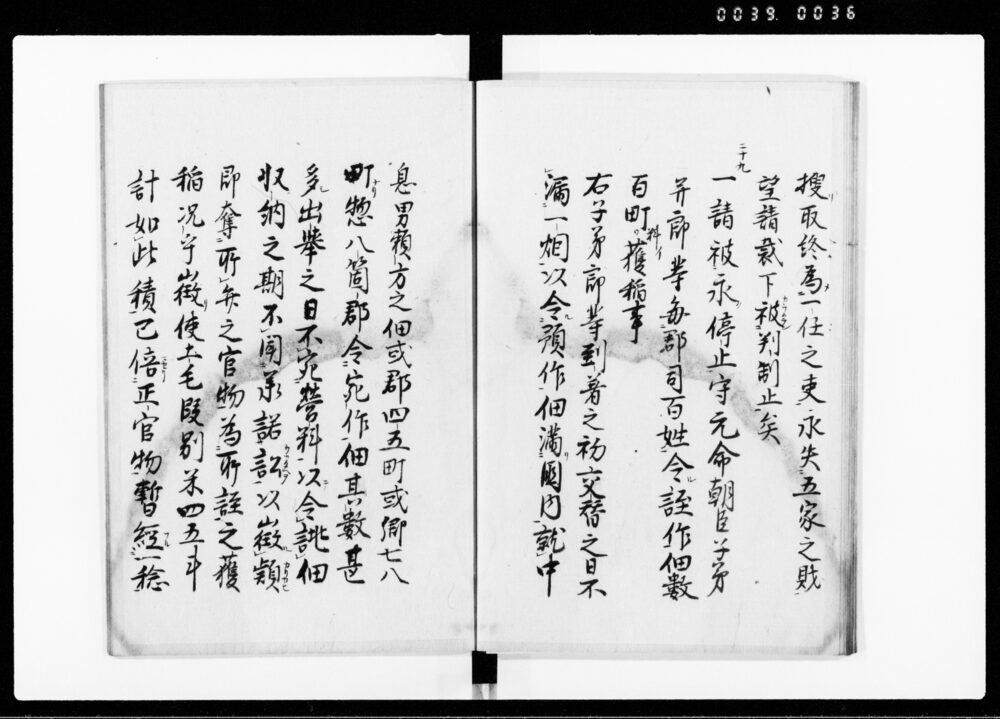 0039 0036
搜取終為一任之吏永失五家之貯
望請裁下被判制止矣
二十九
一請被永停止守元命朝臣子弟
并郎等毎郡司百姓令誂作佃數
百町獲稲事
料イ
右子弟郎等到著之初交替之日不
漏一烟以令預作佃満國内就中
息男頼方之佃或郡四五町或郷七八
町惣八箇郡令宛作佃其數甚
多出挙之日不宛営料以令誂佃
収納之期不聞承諾訟以徴穎
即奪所矣之官物為所誂之獲
稲况乎徴使土毛段別米四五斗
計如此積已倍正官物暫經稔